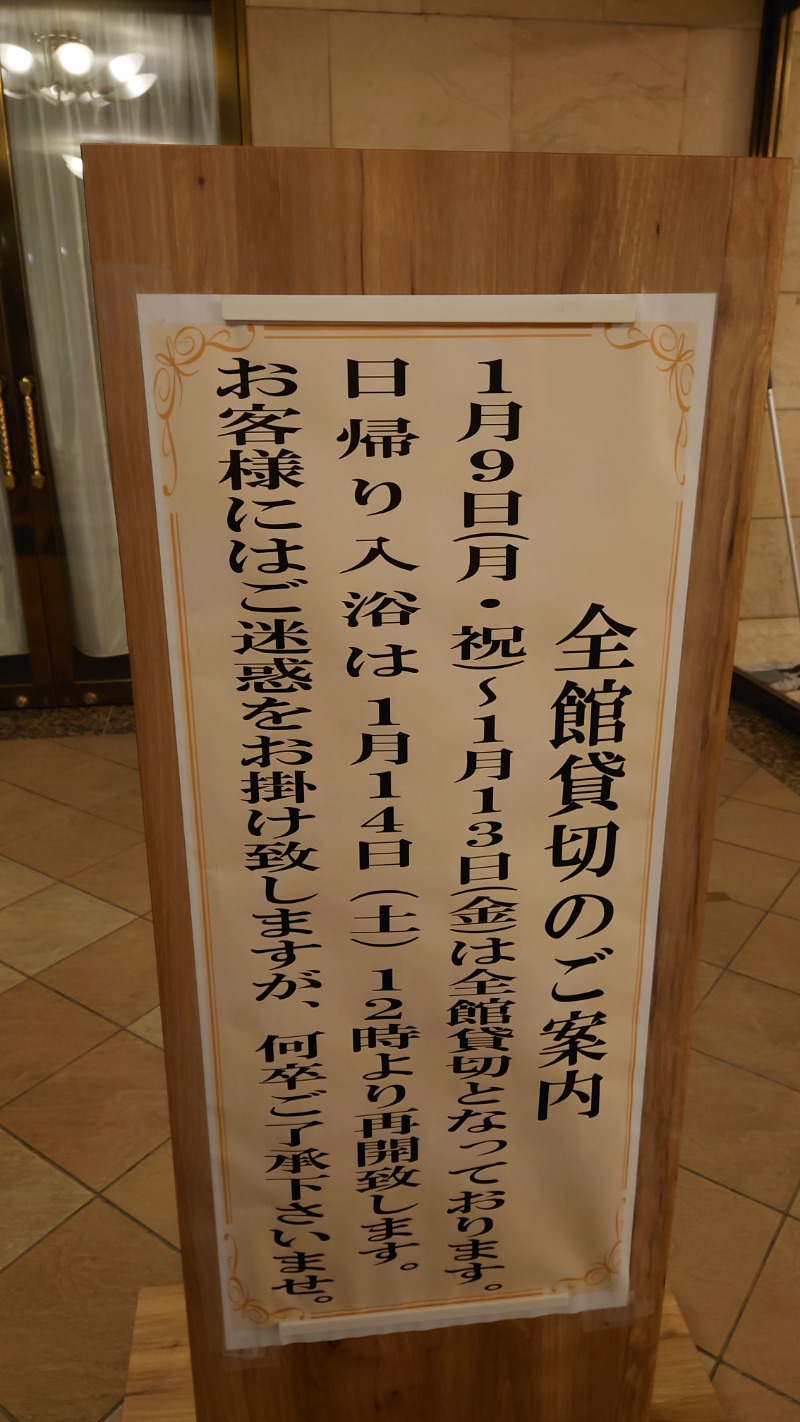 全館貸切のご案内
1月9日(月・祝)～1月13日(金)は全館貸切となっております。
日帰り入浴は1月14日(土)12時より再開致します。
お客様にはご迷惑をお掛け致しますが、何卒ご了承下さいませ。